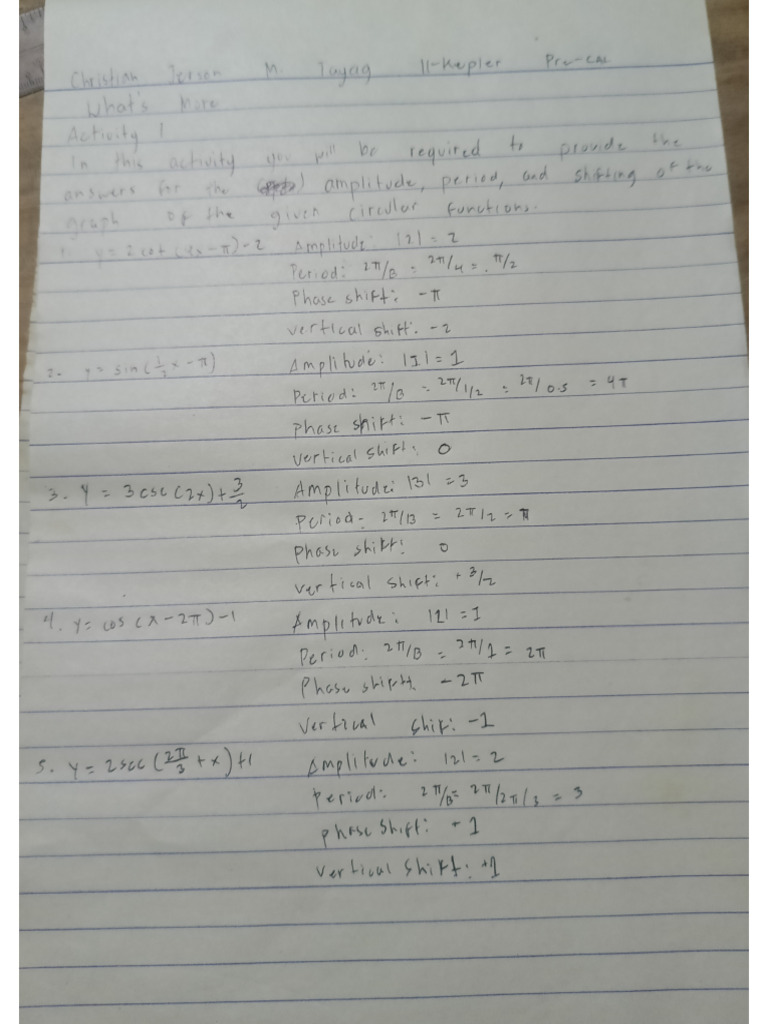 Christian Jerson M. Tayag 11-Kepler Pre-cal
What's More
Activity 1
In this activity you will be required to provide the
answers for the amplitude, period, and shifting of the
graph of the given circular functions.
1. y = 2 cot (4x - π) - 2 Amplitude: |2| = 2
Period: 2π/B = 2π/4 = π/2
Phase shift: -π
vertical shift: -2
2. y = sin (1/2 x - π) Amplitude: |1| = 1
Period: 2π/B = 2π/1/2 = 2π/0.5 = 4π
Phase shift: -π
vertical shift: 0
3. y = 3 csc (2x) + 3/2 Amplitude: |3| = 3
Period = 2π/B = 2π/2 = π
Phase shift: 0
vertical shift: + 3/2
4. y = cos (x - 2π) - 1 Amplitude: |1| = 1
Period: 2π/B = 2π/1 = 2π
Phase shift - 2π
vertical shif: -1
5. y = 2 sec (2π/3 + x) + 1 Amplitude: |2| = 2
Period: 2π/B = 2π/2π/3 = 3
phase shift: + 1
vertical shift: +1